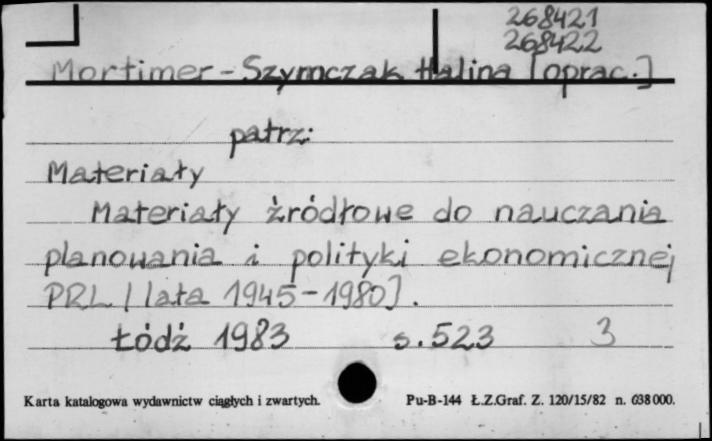 268421
268422
Mortimer-Szymczak Halina [oprac.]
patrz:
Materiały
Materiały źródłowe do nauczania
planowania i polityki ekonomicznej
PRL [lata 1945-1980].
Łódź 1983 s. 523 3
Karta katalogowa wydawnictw ciągłych i zwartych. Pu-B-144 Ł.Z.Graf. Z. 120/15/82 n. 638000.